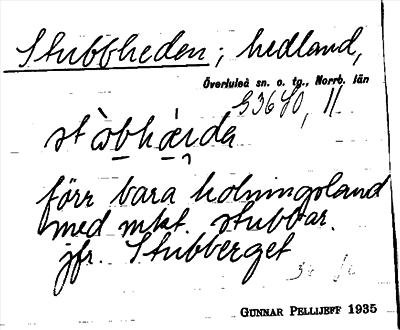 Stubbheden; hedland,
Överluleå sn. o. tg., Norrb. län
S3640, 11
förr bara holningsland
med mkt. stubbar.
jfr. Stubberget
GUNNAR PELLIJEFF 1935